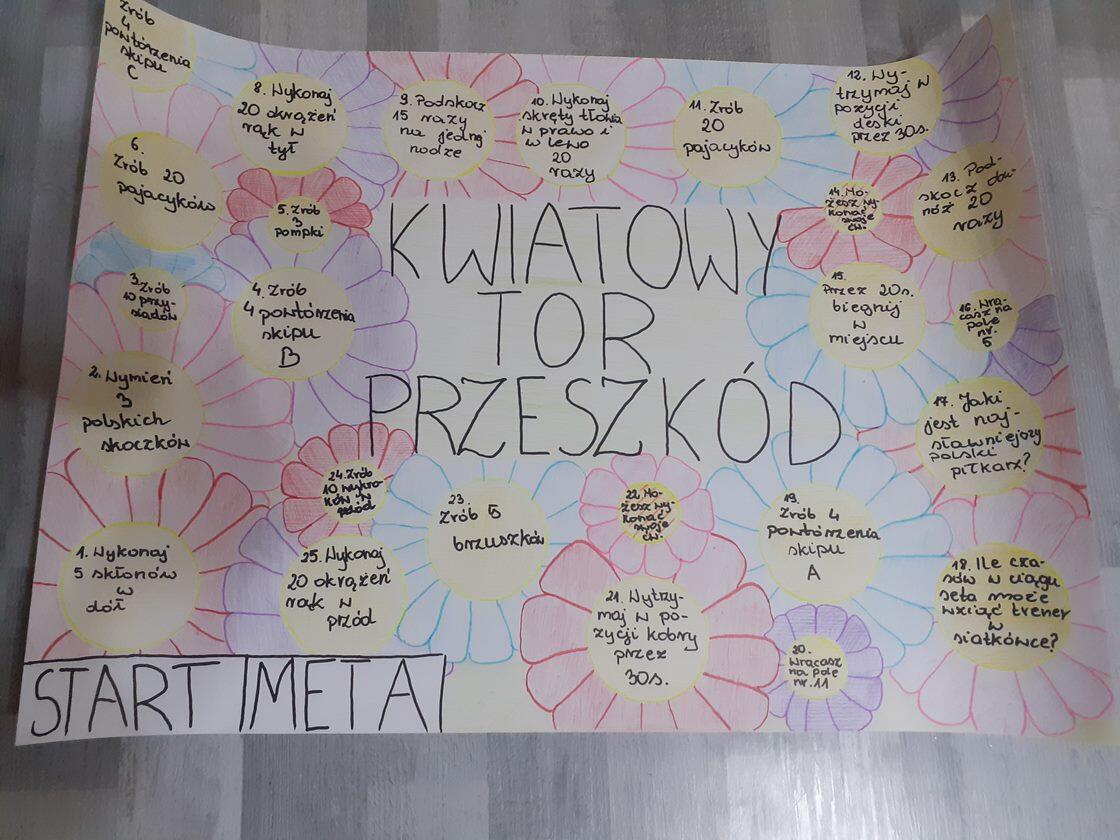 KWIATOWY
TOR
PRZESZKÓD
START META
1. Wykonaj
5 skłonów
w
dół
2. Wymień
3
polskich
skoczków
3. Zrób
10 przy-
siadów
4. Zrób
4 powtórzenia
skipu
B
5. Zrób
3
pompki
6.
Zrób 20
pajacyków
Zrób
4
powtórzenia
skipu
C
8. Wykonaj
20 okrążeń
rąk w
tył
9. Podskocz
15 razy
na jednej
nodze
10. Wykonaj
skręty tłowia
w prawo i
w lewo
20
razy
11. Zrób
20
pajacyków
12. Wy-
trzymaj w
pozycji
deski
przez 30s.
13. Pod-
skocz
nóż 20
razy
14. Mo-
żesz wy-
konać
swoje
ćw.
15.
Przez 20s.
biegnij
w
miejscu
16. Wra-
casz na
pole
nr.
5
17. Jaki
jest naj-
sławniejszy
polski
piłkarz?
18. Ile cza-
sów w ciągu
seta może
wziąć trener
w
siatkówce?
19.
Zrób 4
powtórzenia
skipu
A
20.
Wracasz
na pole
nr. 11
21. Wytrzy-
maj w po-
zycji kobry
przez
30s.
22. Mo-
żesz wy-
konać
swoje
ćw.
23.
Zrób 5
brzuszków
24. Zrób
10 wykro-
ków w
przód
25. Wykonaj
20 okrążeń
rąk w
przód